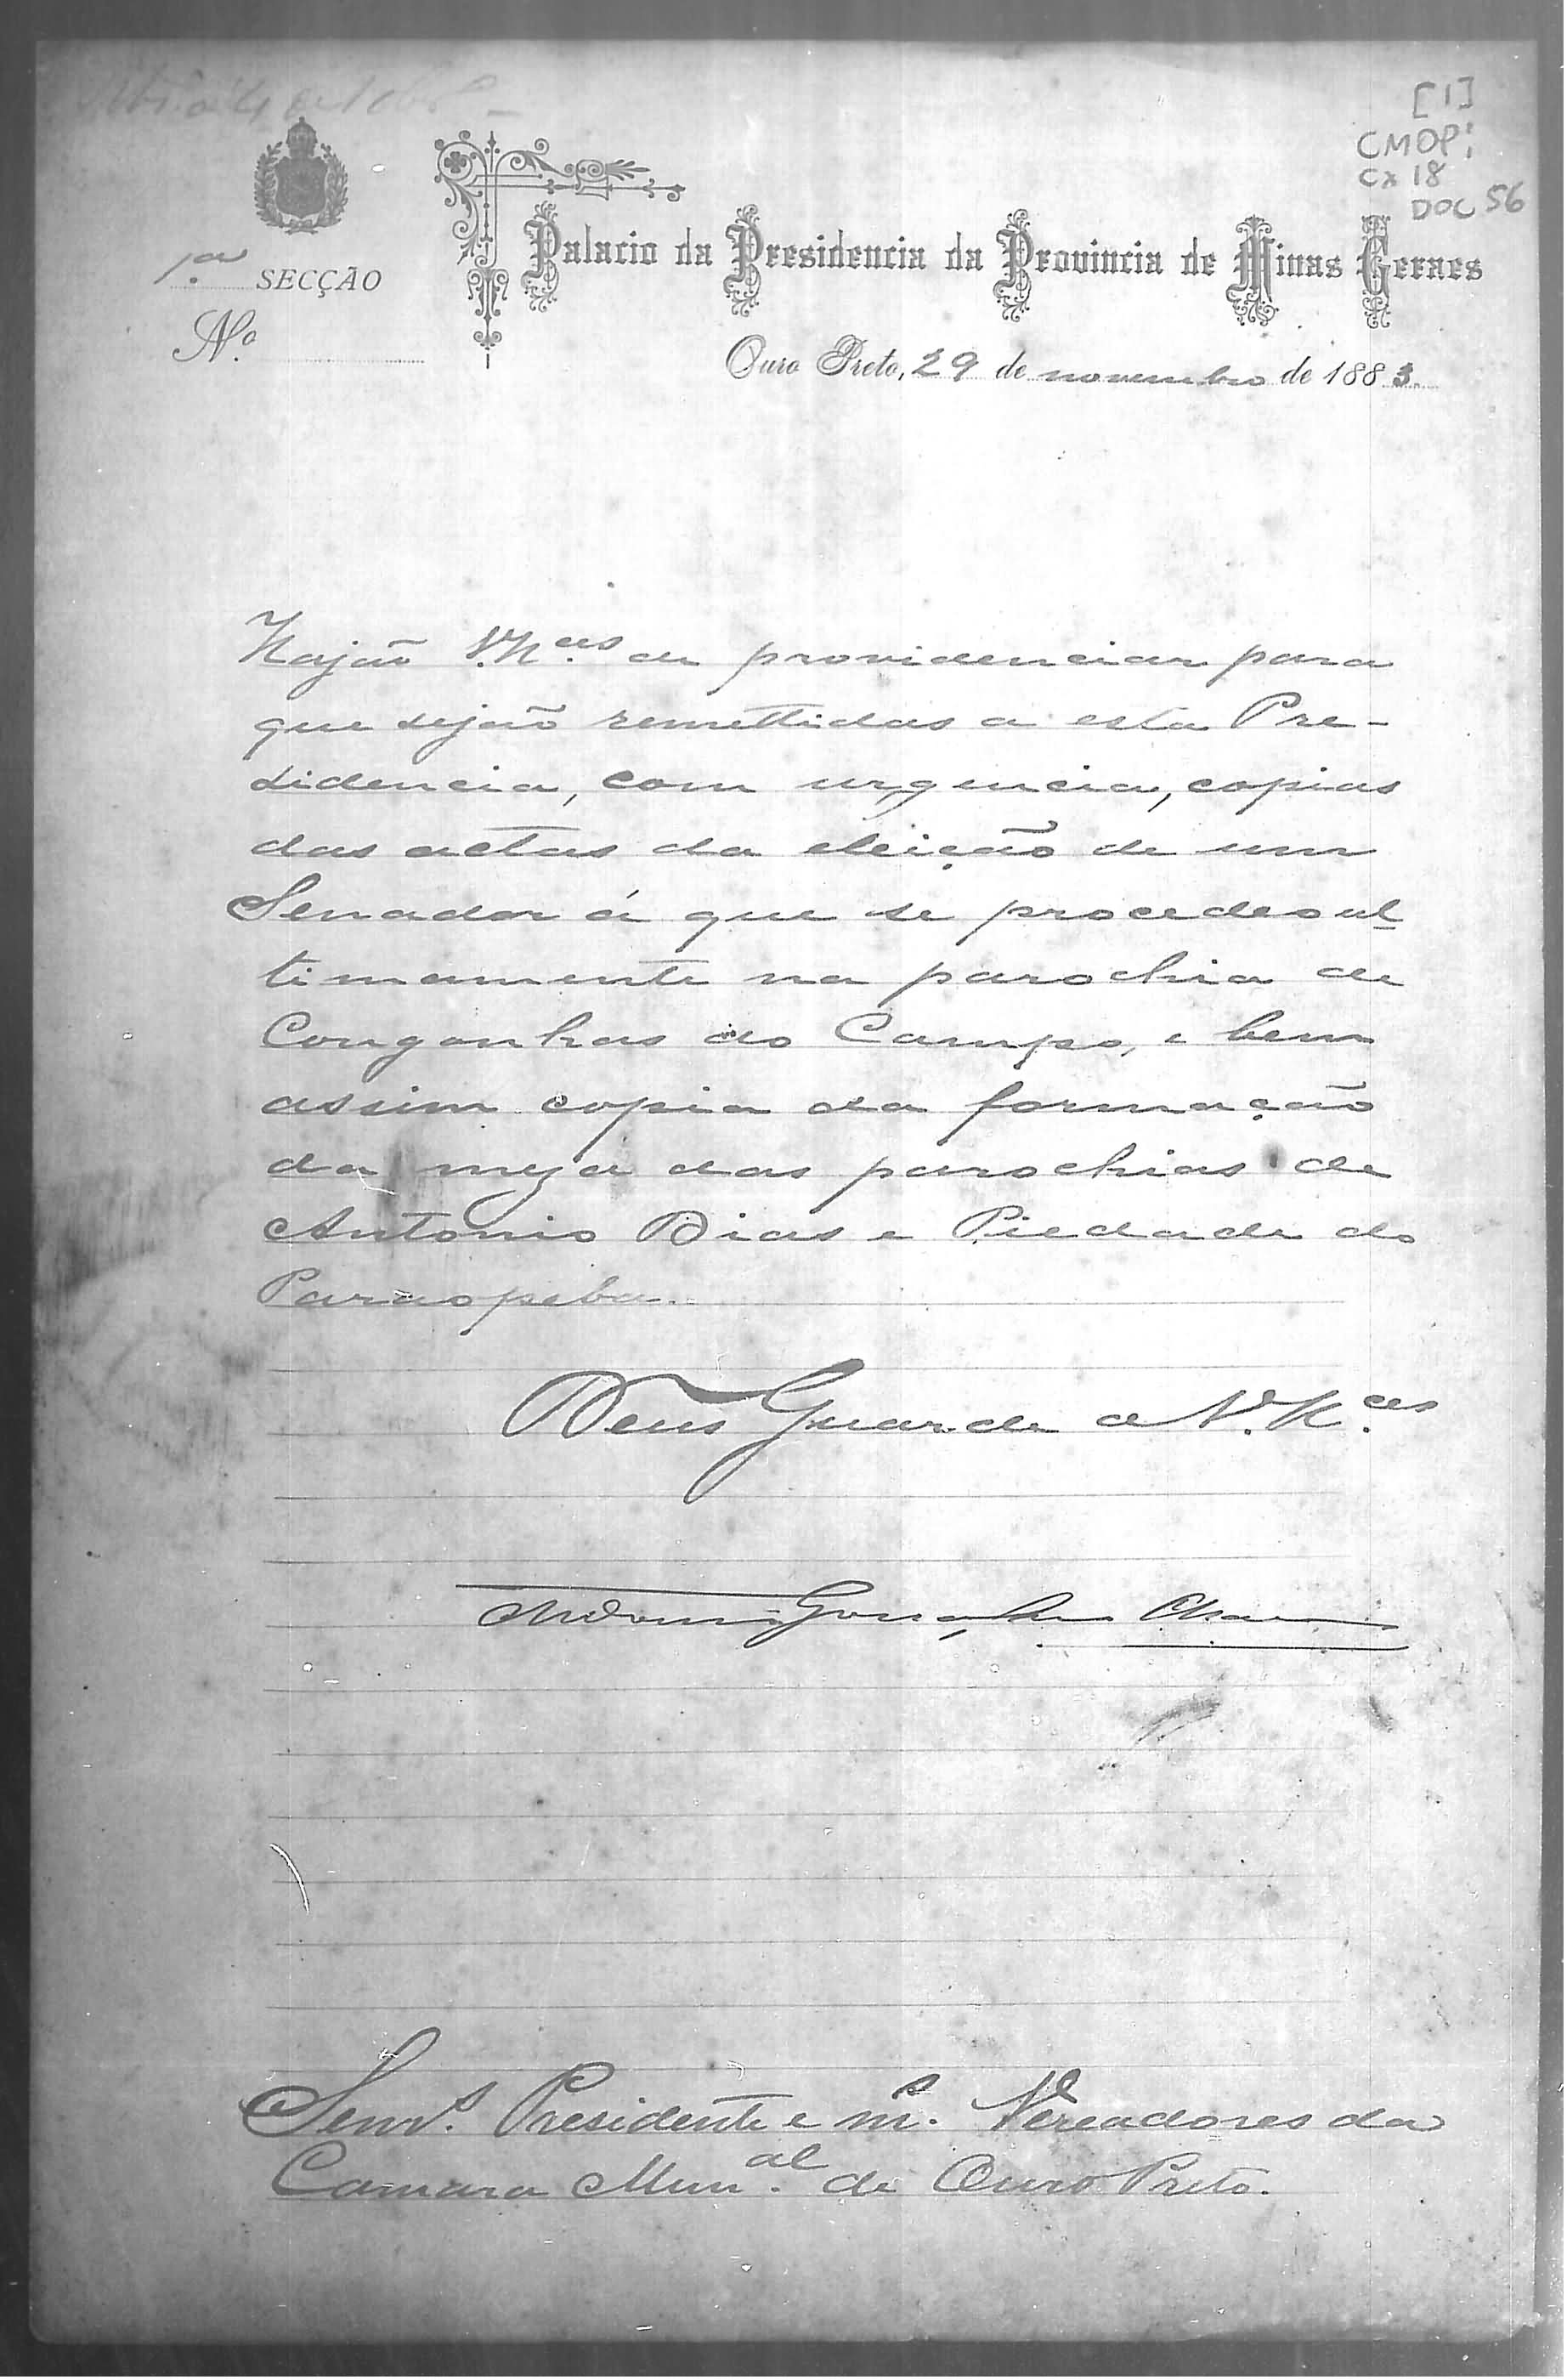 [1]
CMOP:
CX 18
DOC 56
Palacio da Presidencia da Provincia de Minas Geraes
1.ª SECÇÃO
N.º
Ouro Preto, 29 de novembro de 1883.
Hajão V.M.ces de providenciar para
que sejão remettidas a esta Pre-
sidencia, com urgencia, copias
das actas da eleição de um
Senador á que se procedeo ul
timamente na parochia de
Congonhas do Campo, e bem
assim copia da formação
da meza das parochias de
Antonio Dias e Piedade do
Paraopeba.
Deus Guarde a V.M.ces
Antonio Gonçalves Chaves
Senr.s Presidente e m.s Vereadores da
Camara Mun.al de Ouro Preto.